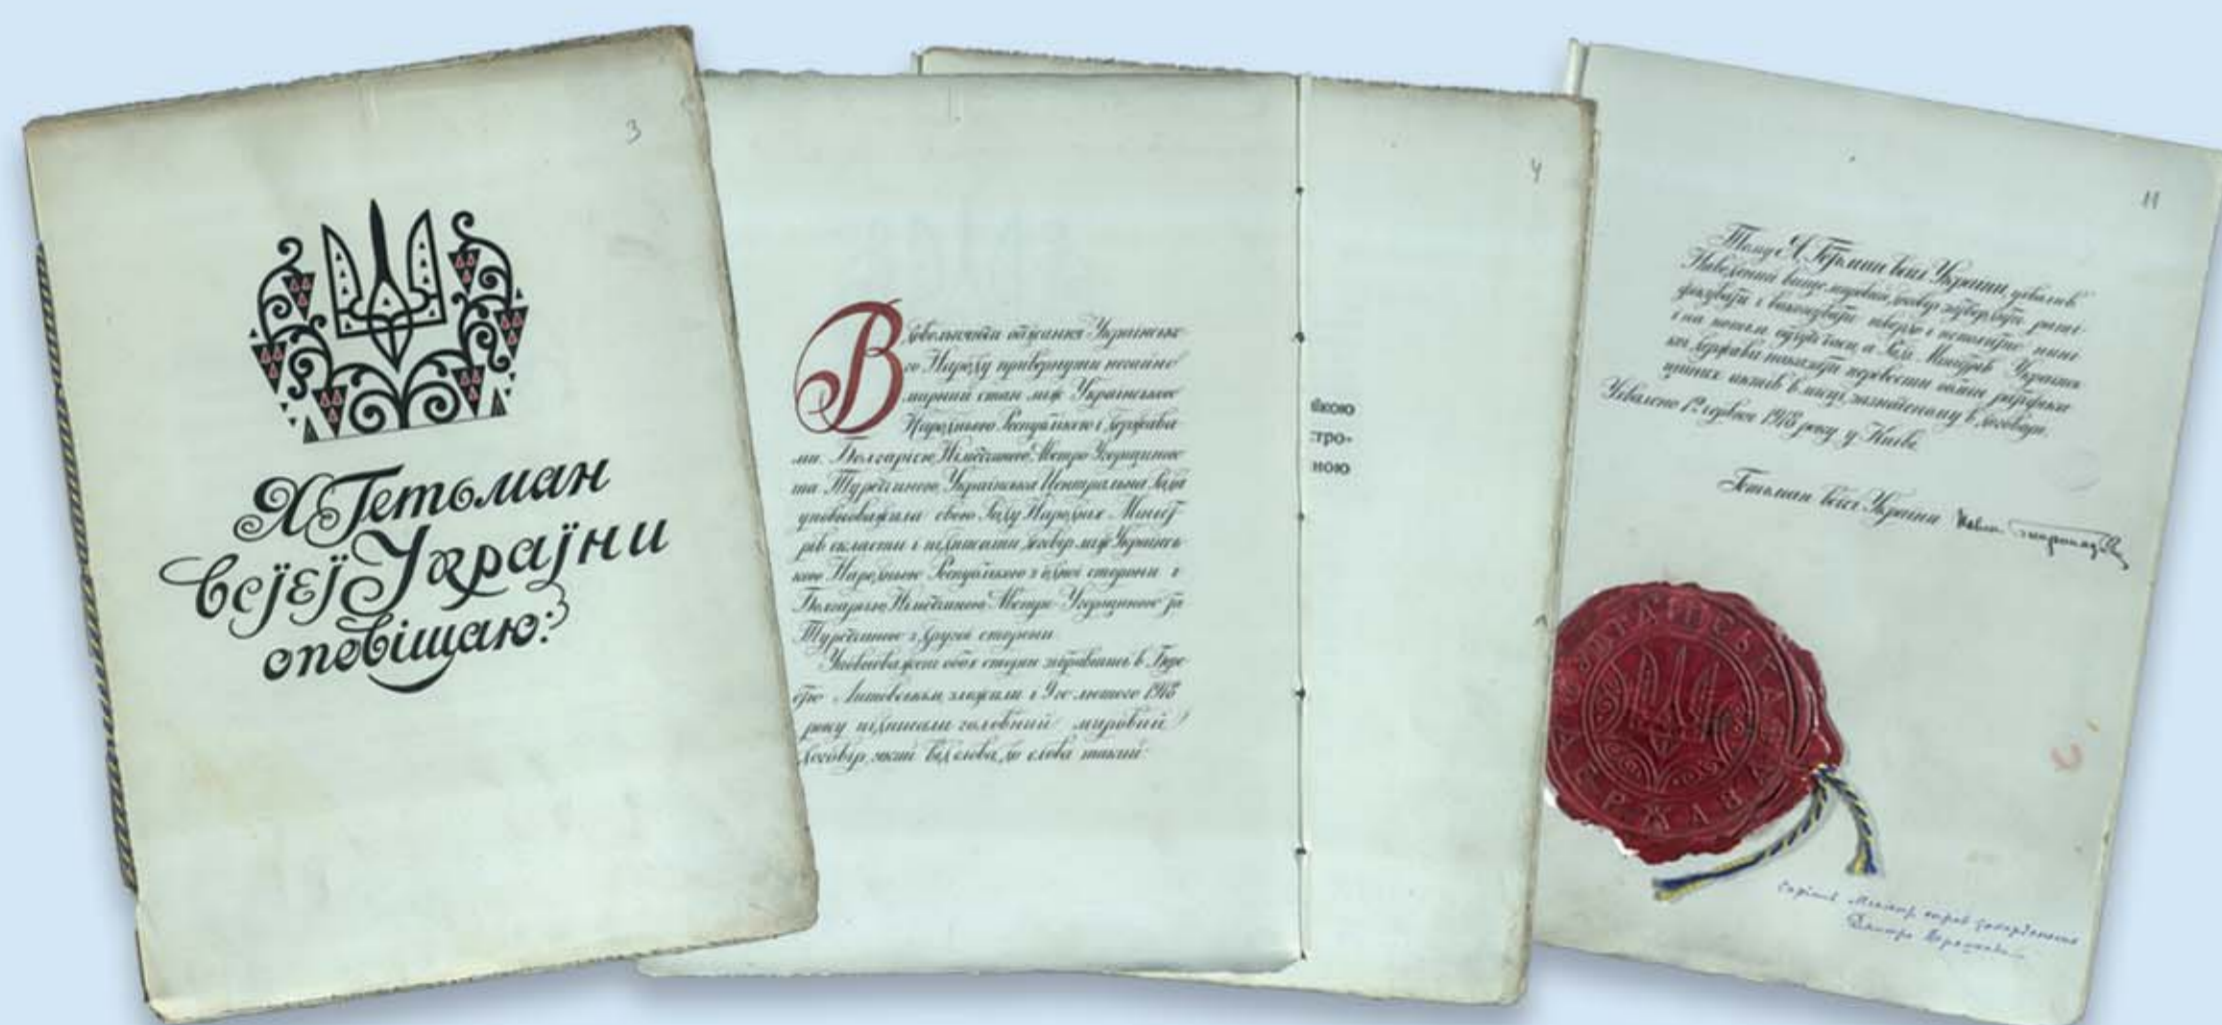 3
Я Гетьман
всјеј Украјни
оповіщаю:
Вдовольняючи бажання Українсько
го Народу привернути негайно
мирний стан між Українською
Народньою Республікою і Держава
ми Болгарією Німеччиною Австро-Угорщиною
та Туреччиною Українська Центральна Рада
уповноважила свою Раду Народніх Мініст
рів скласти і підписати договір між Українсь
кою Народньою Республікою з одної сторони і
Болгарією Німеччиною Австро-Угорщиною та
Туреччиною з другої сторони
Уповноважені обох сторін зібравшись в Бере
стю Литовськім зложили і 9го лютого 1918
року підписали головний мировий
договір, який від слова до слова такий:
4
ікою
стро-
ною
11
Тому Я Гетьман всієї України ухвалив
Наведений вище мировий договір затвердити рати-
фікувати і виконувати твердо і непохитно нині
і на потім а Рада Міністрів Українсь
кої Держави перевести обмін ратифіка
ційних актів в місці зазначеному в договорі.
Ухвалено 1го червня 1918 року у Києві
Гетьман всієї України Павло Скоропадський
УКРАЇНСЬКА ДЕРЖАВА
Міністр справ закордонних
Дмитро Дорошенко